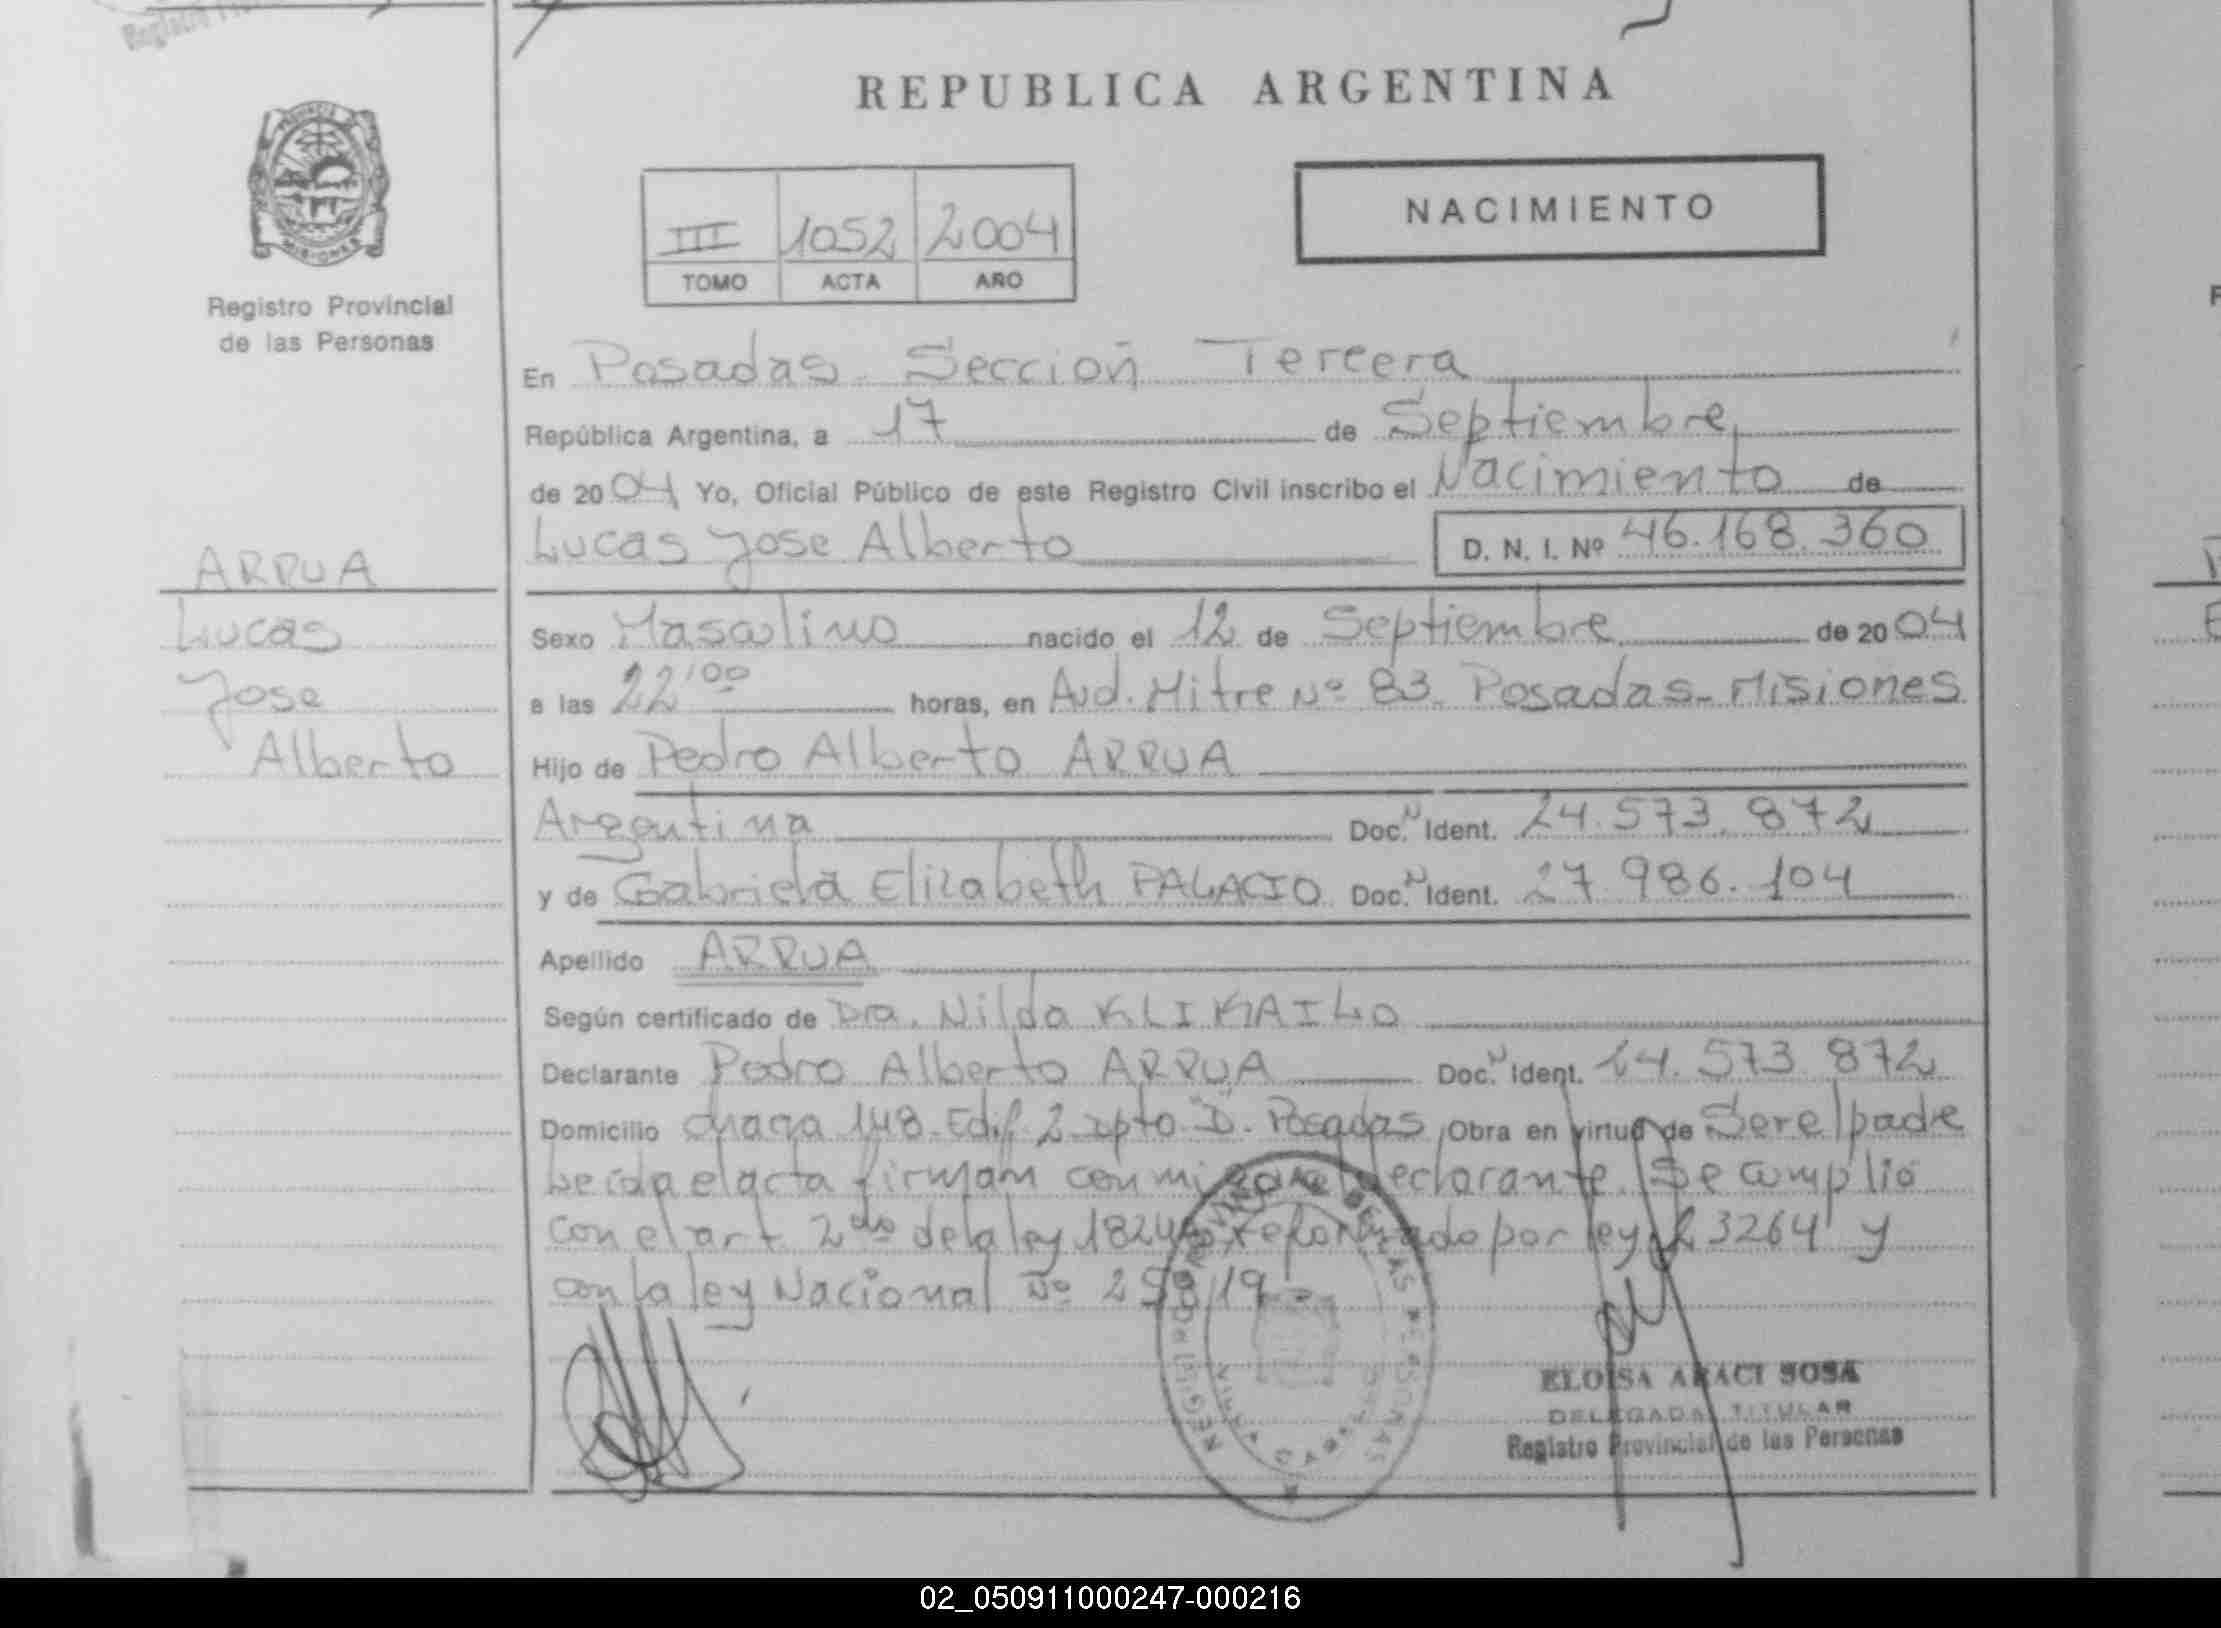 REPUBLICA ARGENTINA
NACIMIENTO
III 1052 2004
TOMO ACTA AÑO
MISIONES
Registro Provincial
de las Personas
En Posadas Sección Tercera
República Argentina, a 17 de Septiembre
de 2004 Yo, Oficial Público de este Registro Civil inscribo el Nacimiento de
Lucas Jose Alberto D. N. I. Nº 46.168.360
ARRUA
Lucas
Jose
Alberto
Sexo Masculino nacido el 12 de Septiembre de 2004
a las 22'00 horas, en Avd. Mitre Nº 83. Posadas-Misiones
Hijo de Pedro Alberto ARRUA
Argentina Doc. N Ident. 24.573.872
y de Gabriela Elizabeth PALACIO Doc. N Ident. 27.986.104
Apellido ARRUA
Según certificado de Dra. Nilda KLIKAILO
Declarante Pedro Alberto ARRUA Doc. N Ident. 24.573.872
Domicilio 148. Edif. 2 dpto "D". Posadas Obra en virtud de Ser el padre
Leida el acta firman conmigo el declarante. Se cumplió
con el art. 2do de la ley 18248, reformado por ley 23264 y
con la ley Nacional Nº
ELOISA ARACI SOSA
DELEGADA TITULAR
Registro Provincial de las Personas
02_050911000247-000216